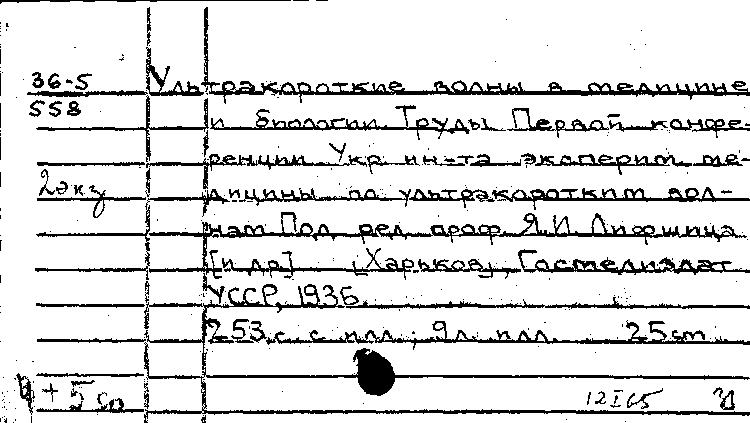 36-5 Ультракороткие волны в медицине
558
и биологии. Труды Первой конфе-
ренции Укр. ин-та эксперим. ме-
2 экз дицины по ультракоротким вол-
нам. Под ред. проф. Я.И. Лифшица
[и др.] [Харьков], Госмедиздат
УССР, 1936.
253 с. с илл.; 9 л. илл. 25 см
+ 5 со 12 I 65